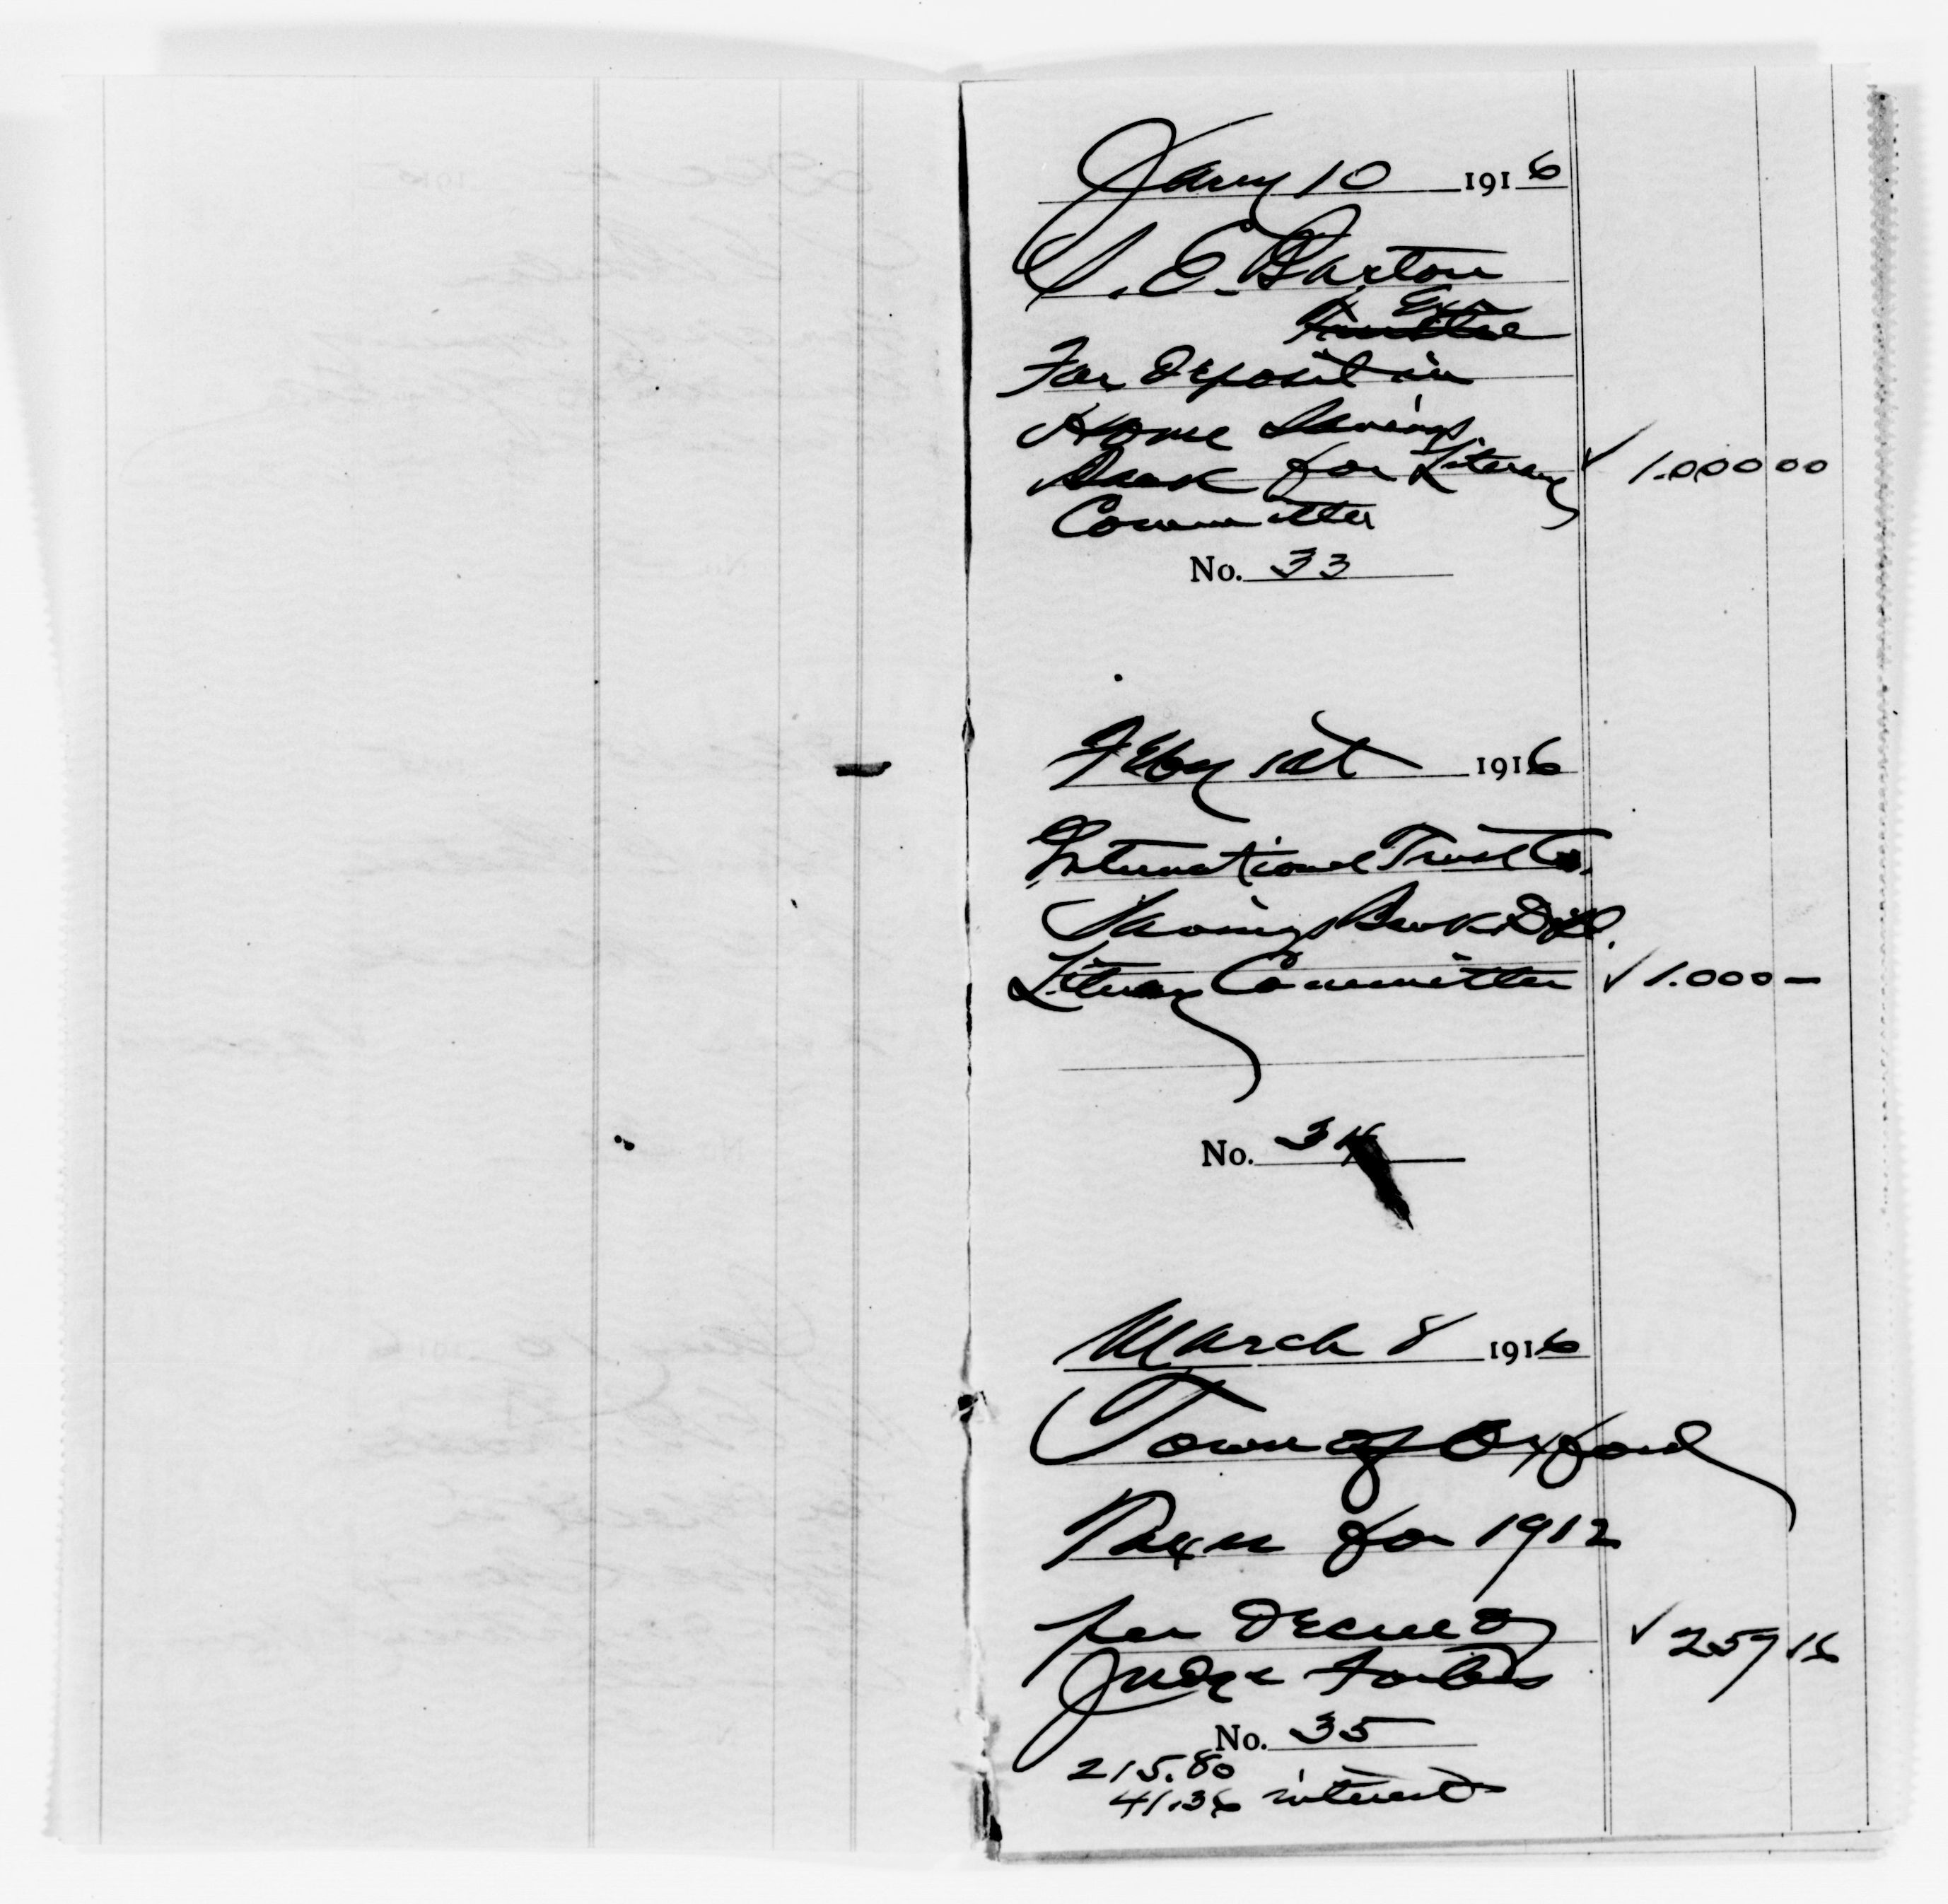 Jany 10 1916
S. E. Barton
Exr
Trustee
For Deposit in
Home Savings
Bank for Literary ✓ 1.000 00
Committee
No. 33
Feby 1st 1916
International Trust Co.
Savings Bank Dept.
Literary Committee ✓ 1.000 —
No. 34
March 8 1916
Town of Oxford
Taxes for 1912
per Decree of ✓ 257 16
Judge Forbes
No. 35
215.80
41.36 interest